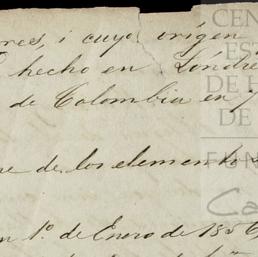 ores, i cuyo orígen
hecho en Lóndre
de Colombia en
re de los elementos
n 1º de Enero de 185
CEN
ES
DE H
DE
FUN
Ca